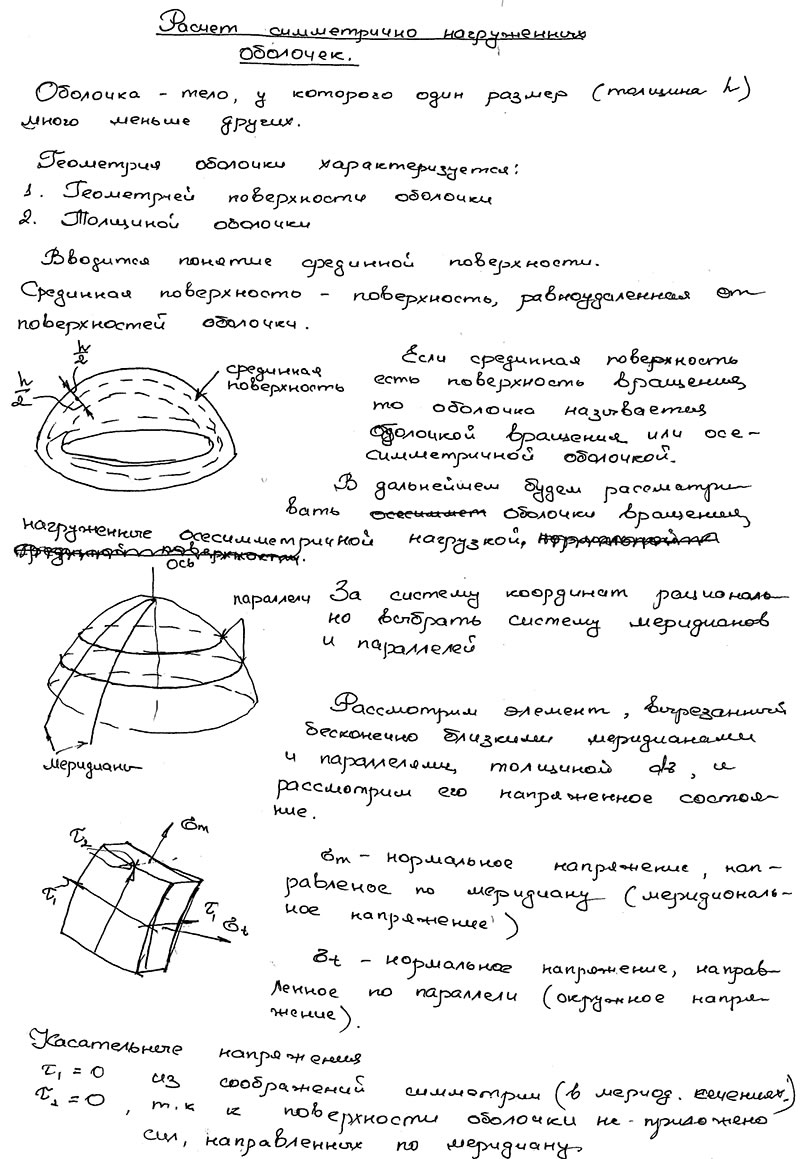 Расчет симметрично нагруженных
оболочек.
Оболочка - тело, у которого один размер (толщина h)
много меньше других.
Геометрия оболочки характеризуется:
1. Геометрией поверхности оболочки
2. Толщиной оболочки
Вводится понятие срединной поверхности.
Срединная поверхность - поверхность, равноудаленная от
поверхностей оболочки.
h/2
h/2
срединная
поверхность
Если срединная поверхность
есть поверхность вращения,
то оболочка называется
оболочкой вращения или осе-
симметричной оболочкой.
В дальнейшем будем рассматри-
вать осесиммет оболочки вращения,
нагруженные осесимметричной нагрузкой,
срединной поверхности.
ось
параллели
меридианы
За систему координат рациональ-
но выбрать систему меридианов
и параллелей
Рассмотрим элемент, вырезанный
бесконечно близкими меридианами
и параллелями, толщиной и
рассмотрим его напряженное состоя-
ние.
τ₂
σm
τ₁
τ₁
σt
σm - нормальное напряжение, нап-
равленое по меридиану (меридиональ-
ное напряжение)
σt - нормальное напряжение, направ-
ленное по параллели (окружное напря-
жение).
Касательные напряжения
τ₁ = 0 из соображений симметрии (в мерид. сечениях)
τ₂ = 0, т.к к поверхности оболочки не приложено
сил, направленных по меридиану.